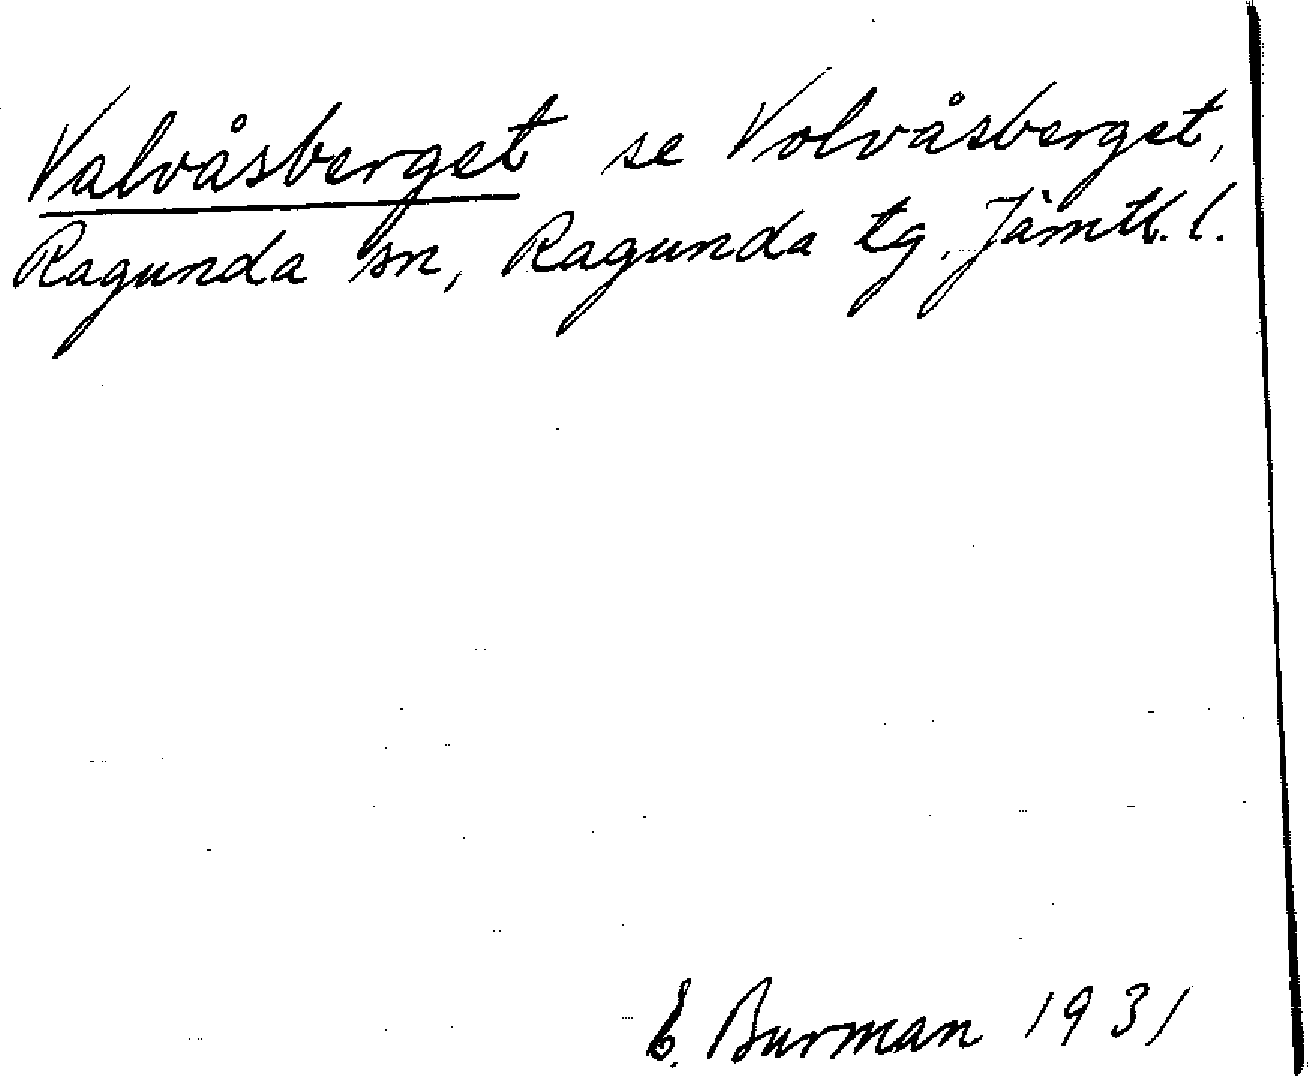 Valvåsberget se Volvåsberget,
Ragunda sn, Ragunda tg. Jämtl. l.
E. Burman 1931